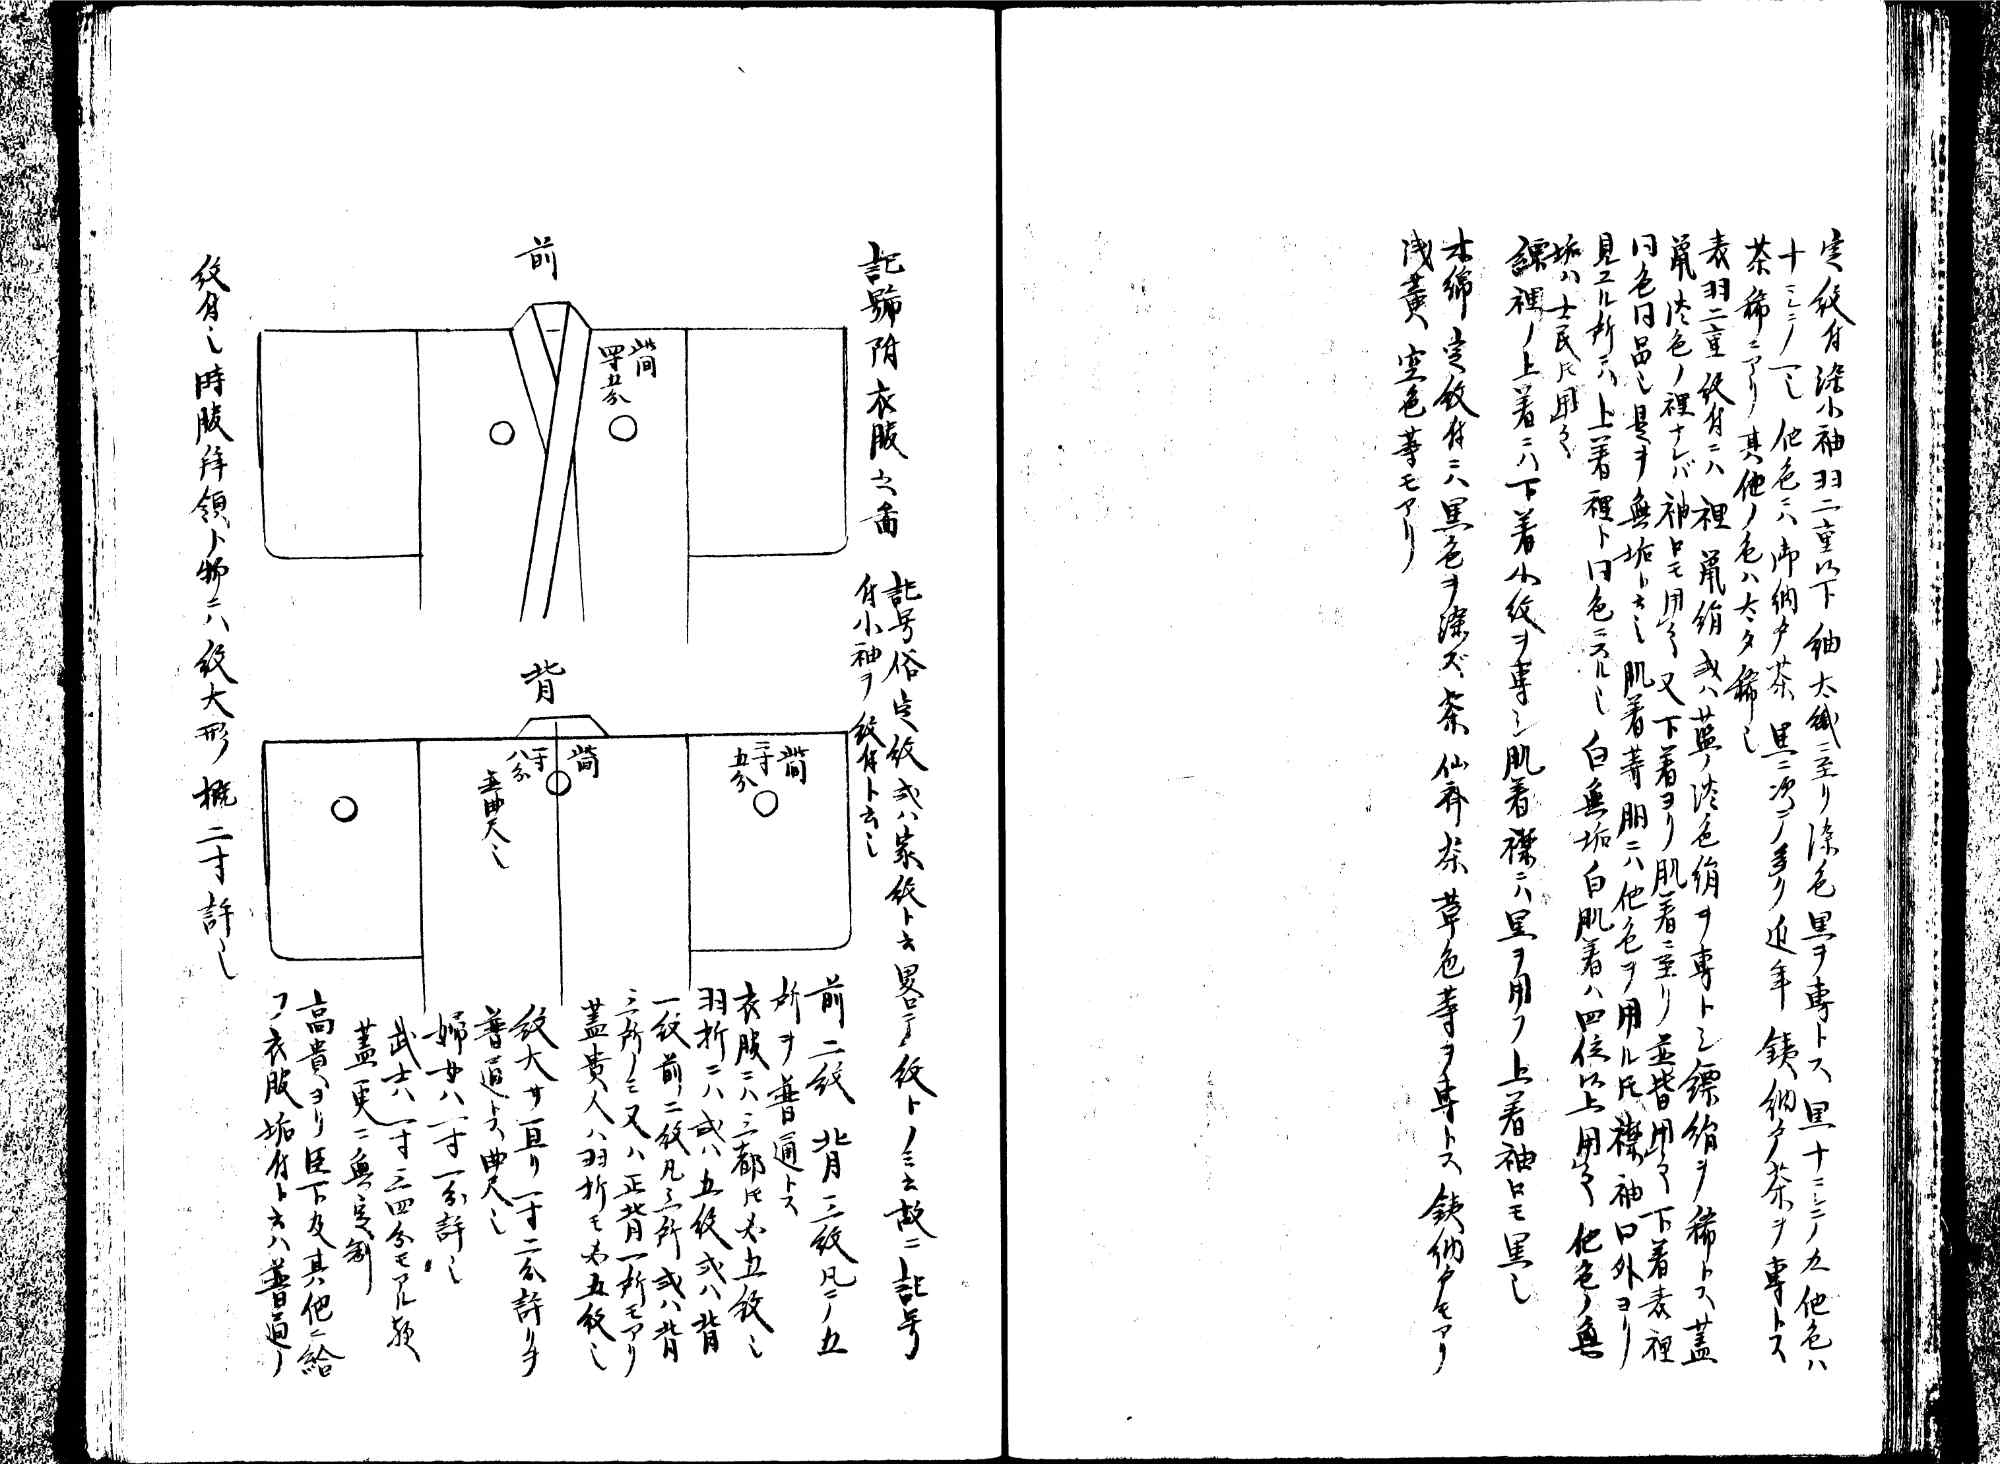 定紋付染小袖羽二重以下紬太織ニ至リ染色黒ヲ専トス黒十ニシテノ九他色ハ
十ニシテノ一也他色ニハ御納戸茶黒ニ次テ多リ近年銕納戸茶ヲ専トス
茶稀ニアリ其他ノ色ハ太ダ稀也
表羽二重紋付ニハ裡鼠絹或ハ藍ノ淡色絹ヲ専トシ縹絹ヲ稀トス蓋
鼠淡色ノ裡ナレバ袖口モ用之又下着ヨリ肌着ニ至リ並皆用之下着表裡
同色同品也是ヲ無垢ト云也肌着等胴ニハ他色ヲ用ル𪜈襟袖口外ヨリ
見エル所ニハ上着裡ト同色ニスル也白無垢白肌着ハ四位以上用之他色ノ無
垢ハ士民𪜈用之
縹裡ノ上着ニハ下着小紋ヲ専シ肌着襟ニハ黒ヲ用フ上着袖口モ黒也
木綿定紋付ニハ黒色ヲ染ズ茶仙斎茶草色等ヲ専トス銕納戸モアリ
浅黄空色等モアリ
記號附衣服之啚
記号俗定紋或ハ家紋ト云畧シテ紋トノミ云故ニ記号
付小袖ヲ紋付ト云也
前
此間
四寸五分
背
此間
二寸
五分
此間
一寸
八分
並曲尺也
前二紋背三紋凡テノ五
所ヲ普通トス
衣服ニハ三都𪜈必五紋也
羽折ニハ或ハ五紋或ハ背
一紋前ニ二紋凡三所或ハ背
三所ノミ又ハ正背一所モアリ
蓋貴人ハ羽折モ必五紋也
紋大サ亘リ一寸二分許リヲ
普通トス曲尺也
婦女ハ一寸一分許也
武士ハ一寸三四分モアル歟
蓋更ニ無定制
高貴ヨリ臣下及其他ニ給
フ衣服垢付ト云ハ普通ノ
紋付也時服拝領ト物ニハ紋大形概二寸許也